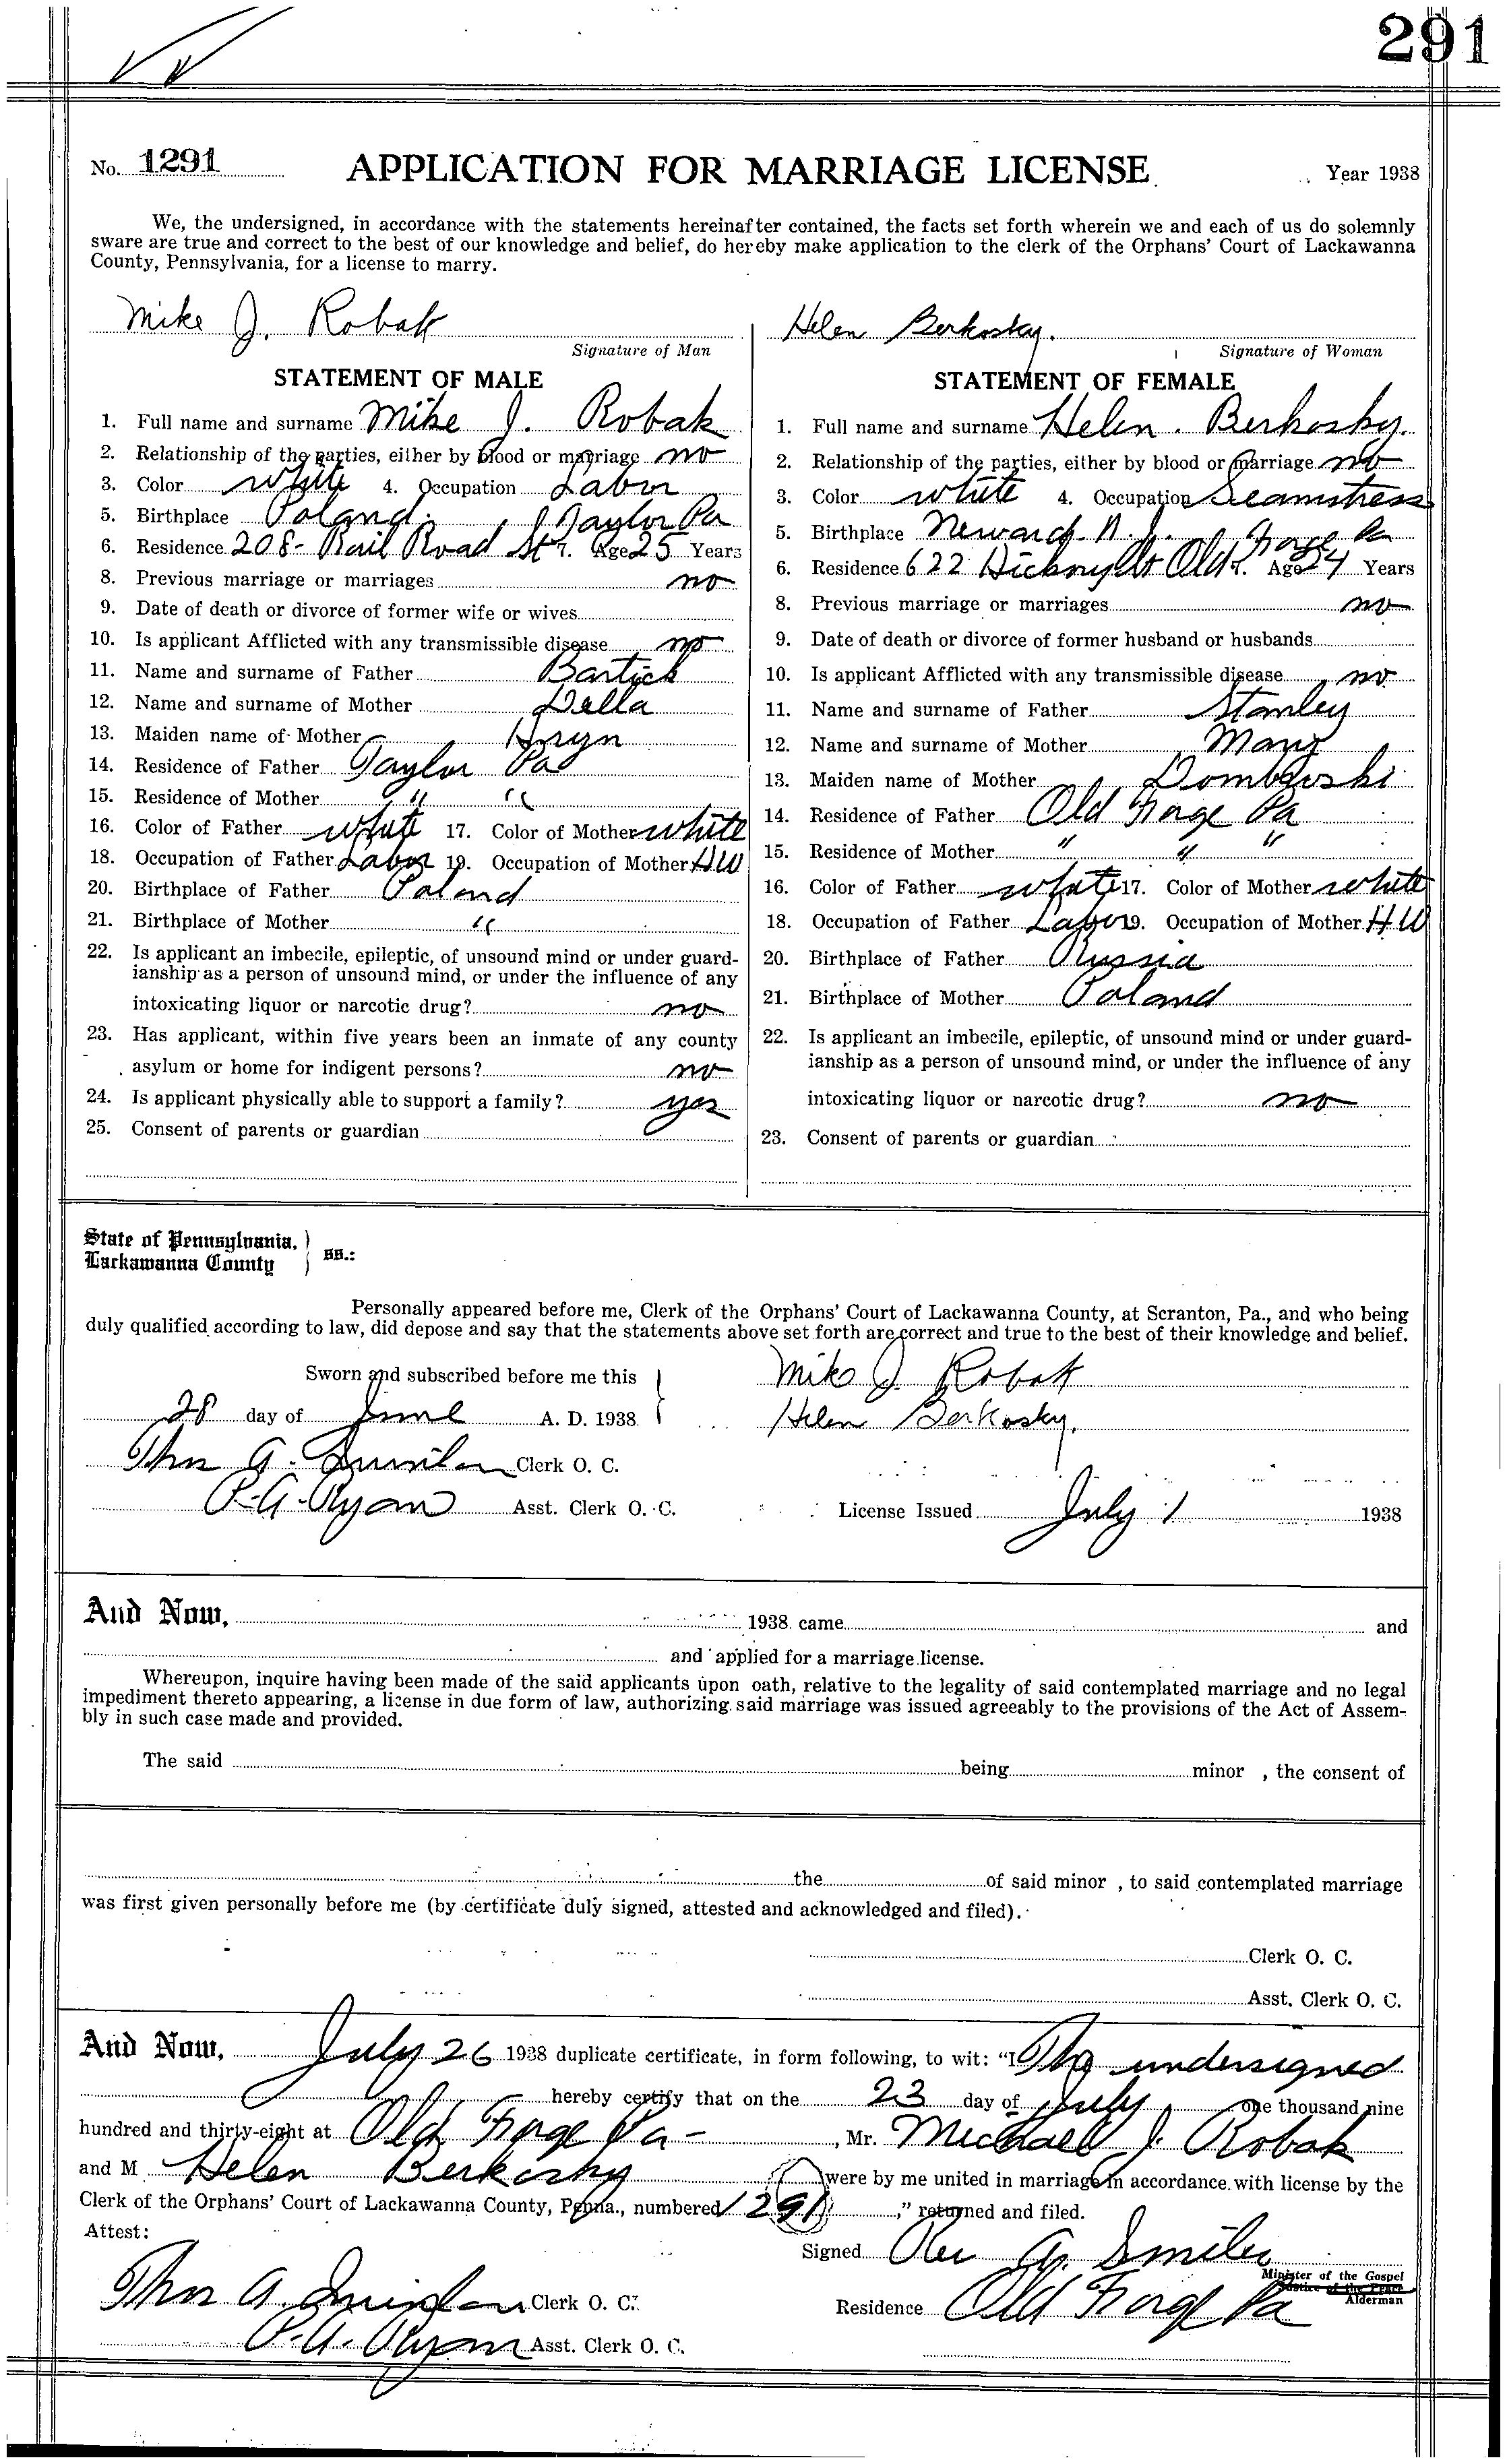 291
No. 1291 APPLICATION FOR MARRIAGE LICENSE Year 1938
We, the undersigned, in accordance with the statements hereinafter contained, the facts set forth wherein we and each of us do solemnly
sware are true and correct to the best of our knowledge and belief, do hereby make application to the clerk of the Orphans' Court of Lackawanna
County, Pennsylvania, for a license to marry.
Mike J. Robak
Signature of Man
STATEMENT OF MALE
1. Full name and surname Mike J. Robak
2. Relationship of the parties, either by blood or marriage no
3. Color white 4. Occupation Labor
5. Birthplace Poland. Taylor Pa
6. Residence 208- Rail Road St 7. Age 25 Years
8. Previous marriage or marriages no
9. Date of death or divorce of former wife or wives
10. Is applicant Afflicted with any transmissible disease no
11. Name and surname of Father Bartick
12. Name and surname of Mother Della
13. Maiden name of Mother Hryn
14. Residence of Father Taylor Pa
15. Residence of Mother " "
16. Color of Father white 17. Color of Mother white
18. Occupation of Father Labor 19. Occupation of Mother HW
20. Birthplace of Father Poland
21. Birthplace of Mother "
22. Is applicant an imbecile, epileptic, of unsound mind or under guard-
ianship as a person of unsound mind, or under the influence of any
intoxicating liquor or narcotic drug? no
23. Has applicant, within five years been an inmate of any county
asylum or home for indigent persons? no
24. Is applicant physically able to support a family? yes
25. Consent of parents or guardian
Helen Berkosky.
Signature of Woman
STATEMENT OF FEMALE
1. Full name and surname Helen. Berkosky.
2. Relationship of the parties, either by blood or marriage no
3. Color white 4. Occupation Seamstress
5. Birthplace Newark N.J. Forge Pa
6. Residence 622 Hickory St Old 7. Age 24 Years
8. Previous marriage or marriages no
9. Date of death or divorce of former husband or husbands
10. Is applicant Afflicted with any transmissible disease no
11. Name and surname of Father Stanley
12. Name and surname of Mother Mary
13. Maiden name of Mother
14. Residence of Father Old Forge Pa
15. Residence of Mother " " "
16. Color of Father white 17. Color of Mother white
18. Occupation of Father Labor 19. Occupation of Mother HW
20. Birthplace of Father Russia
21. Birthplace of Mother Poland
22. Is applicant an imbecile, epileptic, of unsound mind or under guard-
ianship as a person of unsound mind, or under the influence of any
intoxicating liquor or narcotic drug? no
23. Consent of parents or guardian
State of Pennsylvania,
Lackawanna County } ss.:
Personally appeared before me, Clerk of the Orphans' Court of Lackawanna County, at Scranton, Pa., and who being
duly qualified according to law, did depose and say that the statements above set forth are correct and true to the best of their knowledge and belief.
Sworn and subscribed before me this
28 day of June A. D. 1938
Mike J. Robak
Helen Berkosky.
Thos A. Quinlan Clerk O. C.
P. A. Ryan Asst. Clerk O. C.
License Issued July 1 1938
And Now, 1938 came and
and applied for a marriage license.
Whereupon, inquire having been made of the said applicants upon oath, relative to the legality of said contemplated marriage and no legal
impediment thereto appearing, a license in due form of law, authorizing said marriage was issued agreeably to the provisions of the Act of Assem-
bly in such case made and provided.
The said being minor , the consent of
the of said minor , to said contemplated marriage
was first given personally before me (by certificate duly signed, attested and acknowledged and filed).
Clerk O. C.
Asst. Clerk O. C.
And Now, July 26 1938 duplicate certificate, in form following, to wit: "I The undersigned
hereby certify that on the 23 day of July one thousand nine
hundred and thirty-eight at Old Forge Pa- , Mr. Michael J. Robak
and M Helen Berkosky were by me united in marriage in accordance with license by the
Clerk of the Orphans' Court of Lackawanna County, Penna., numbered 1291 ," returned and filed.
Attest:
Signed Rev
Minister of the Gospel
Justice of the Peace
Alderman
Thos A. Quinlan Clerk O. C.
Residence Old Forge Pa
P. A. Ryan Asst. Clerk O. C.